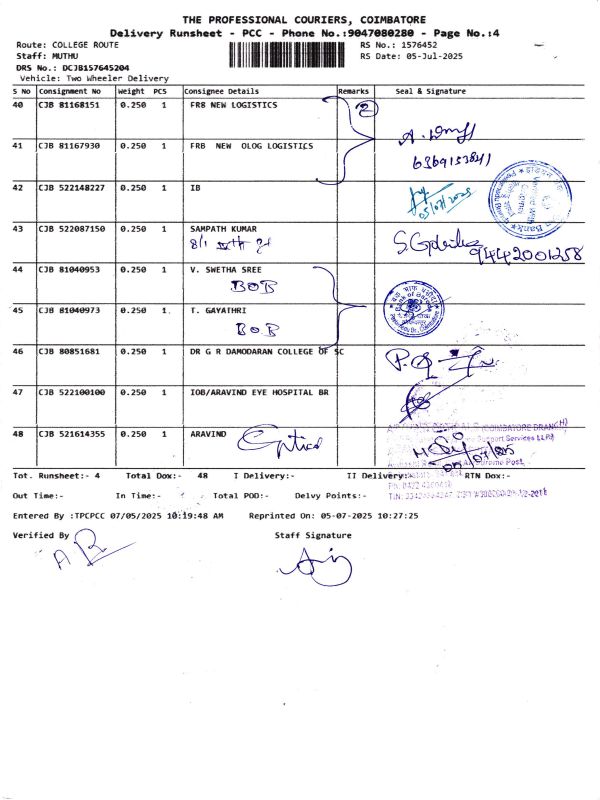 THE PROFESSIONAL COURIERS, COIMBATORE
Delivery Runsheet - PCC - Phone No.:9047080280 - Page No.:4
Route: COLLEGE ROUTE RS No.: 1576452
Staff: MUTHU RS Date: 05-Jul-2025
DRS No.: DCJB157645204
Vehicle: Two Wheeler Delivery
S No Consignment No Weight PCS Consignee Details Remarks Seal & Signature
40 CJB 81168151 0.250 1 FRB NEW LOGISTICS 2
41 CJB 81167930 0.250 1 FRB NEW OLOG LOGISTICS 6369153841
42 CJB 522148227 0.250 1 IB 05/07/2025
43 CJB 522087150 0.250 1 SAMPATH KUMAR
8/1 9442001258
44 CJB 81040953 0.250 1 V. SWETHA SREE
BOB
45 CJB 81040973 0.250 1 T. GAYATHRI
BOB
46 CJB 80851681 0.250 1 DR G R DAMODARAN COLLEGE OF SC
47 CJB 522100100 0.250 1 IOB/ARAVIND EYE HOSPITAL BR
(COIMBATORE BRANCH)
48 CJB 521614355 0.250 1 ARAVIND Optics
Support Services LLP)
Tot. Runsheet:- 4 Total Dox:- 48 I Delivery:- II Delivery:- RTN Dox:-
Out Time:- In Time:- Total POD:- Delvy Points:-
Entered By :TPCPCC 07/05/2025 10:19:48 AM Reprinted On: 05-07-2025 10:27:25
Verified By Staff Signature